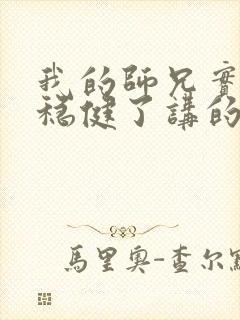 我的師兄實
穩健了講的
馬里奧-查尔